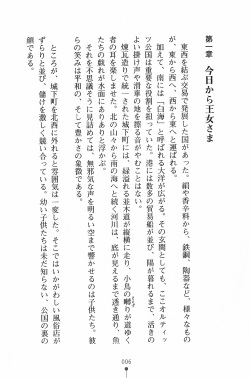 第一章　今日から王女さま
東西を結ぶ交易で発展した国があった。絹や香辛料から、鉄鋼、陶器など、様々なもの
が、東から西へ、西から東へと運ばれる。
加えて、南には「白海」と呼ばれる大洋が広がる。その玄関としても、ここオルティッ
ツ公国は重要な役割を担っていた。港には数多の貿易船が並び、陽が暮れるまで、活きの
よい掛け声や滑車の地を擦る音がやむことはない。
煉瓦造りで統一された城下町には、緑溢れる並木道が縦横に走り、小鳥の囀りが道ゆく
者の耳を楽しませる。北の山々から南の海へと続く河川は、底が見えるまで透き通り、魚
たちの戯れが水面にありありと浮かぶ。
それを不思議そうに見詰めては、無邪気な声を明るい空まで響かせるのは子供たち。彼
らの笑みは平和の、そして豊かさの象徴である。
ところが、城下町を北西に外れると雰囲気は一変した。そこではいかがわしい風俗店が
ずらりと並び、儲けを激しく競い合っている。幼い子供たちは未だ知らない、公国の裏の
顔である。
006